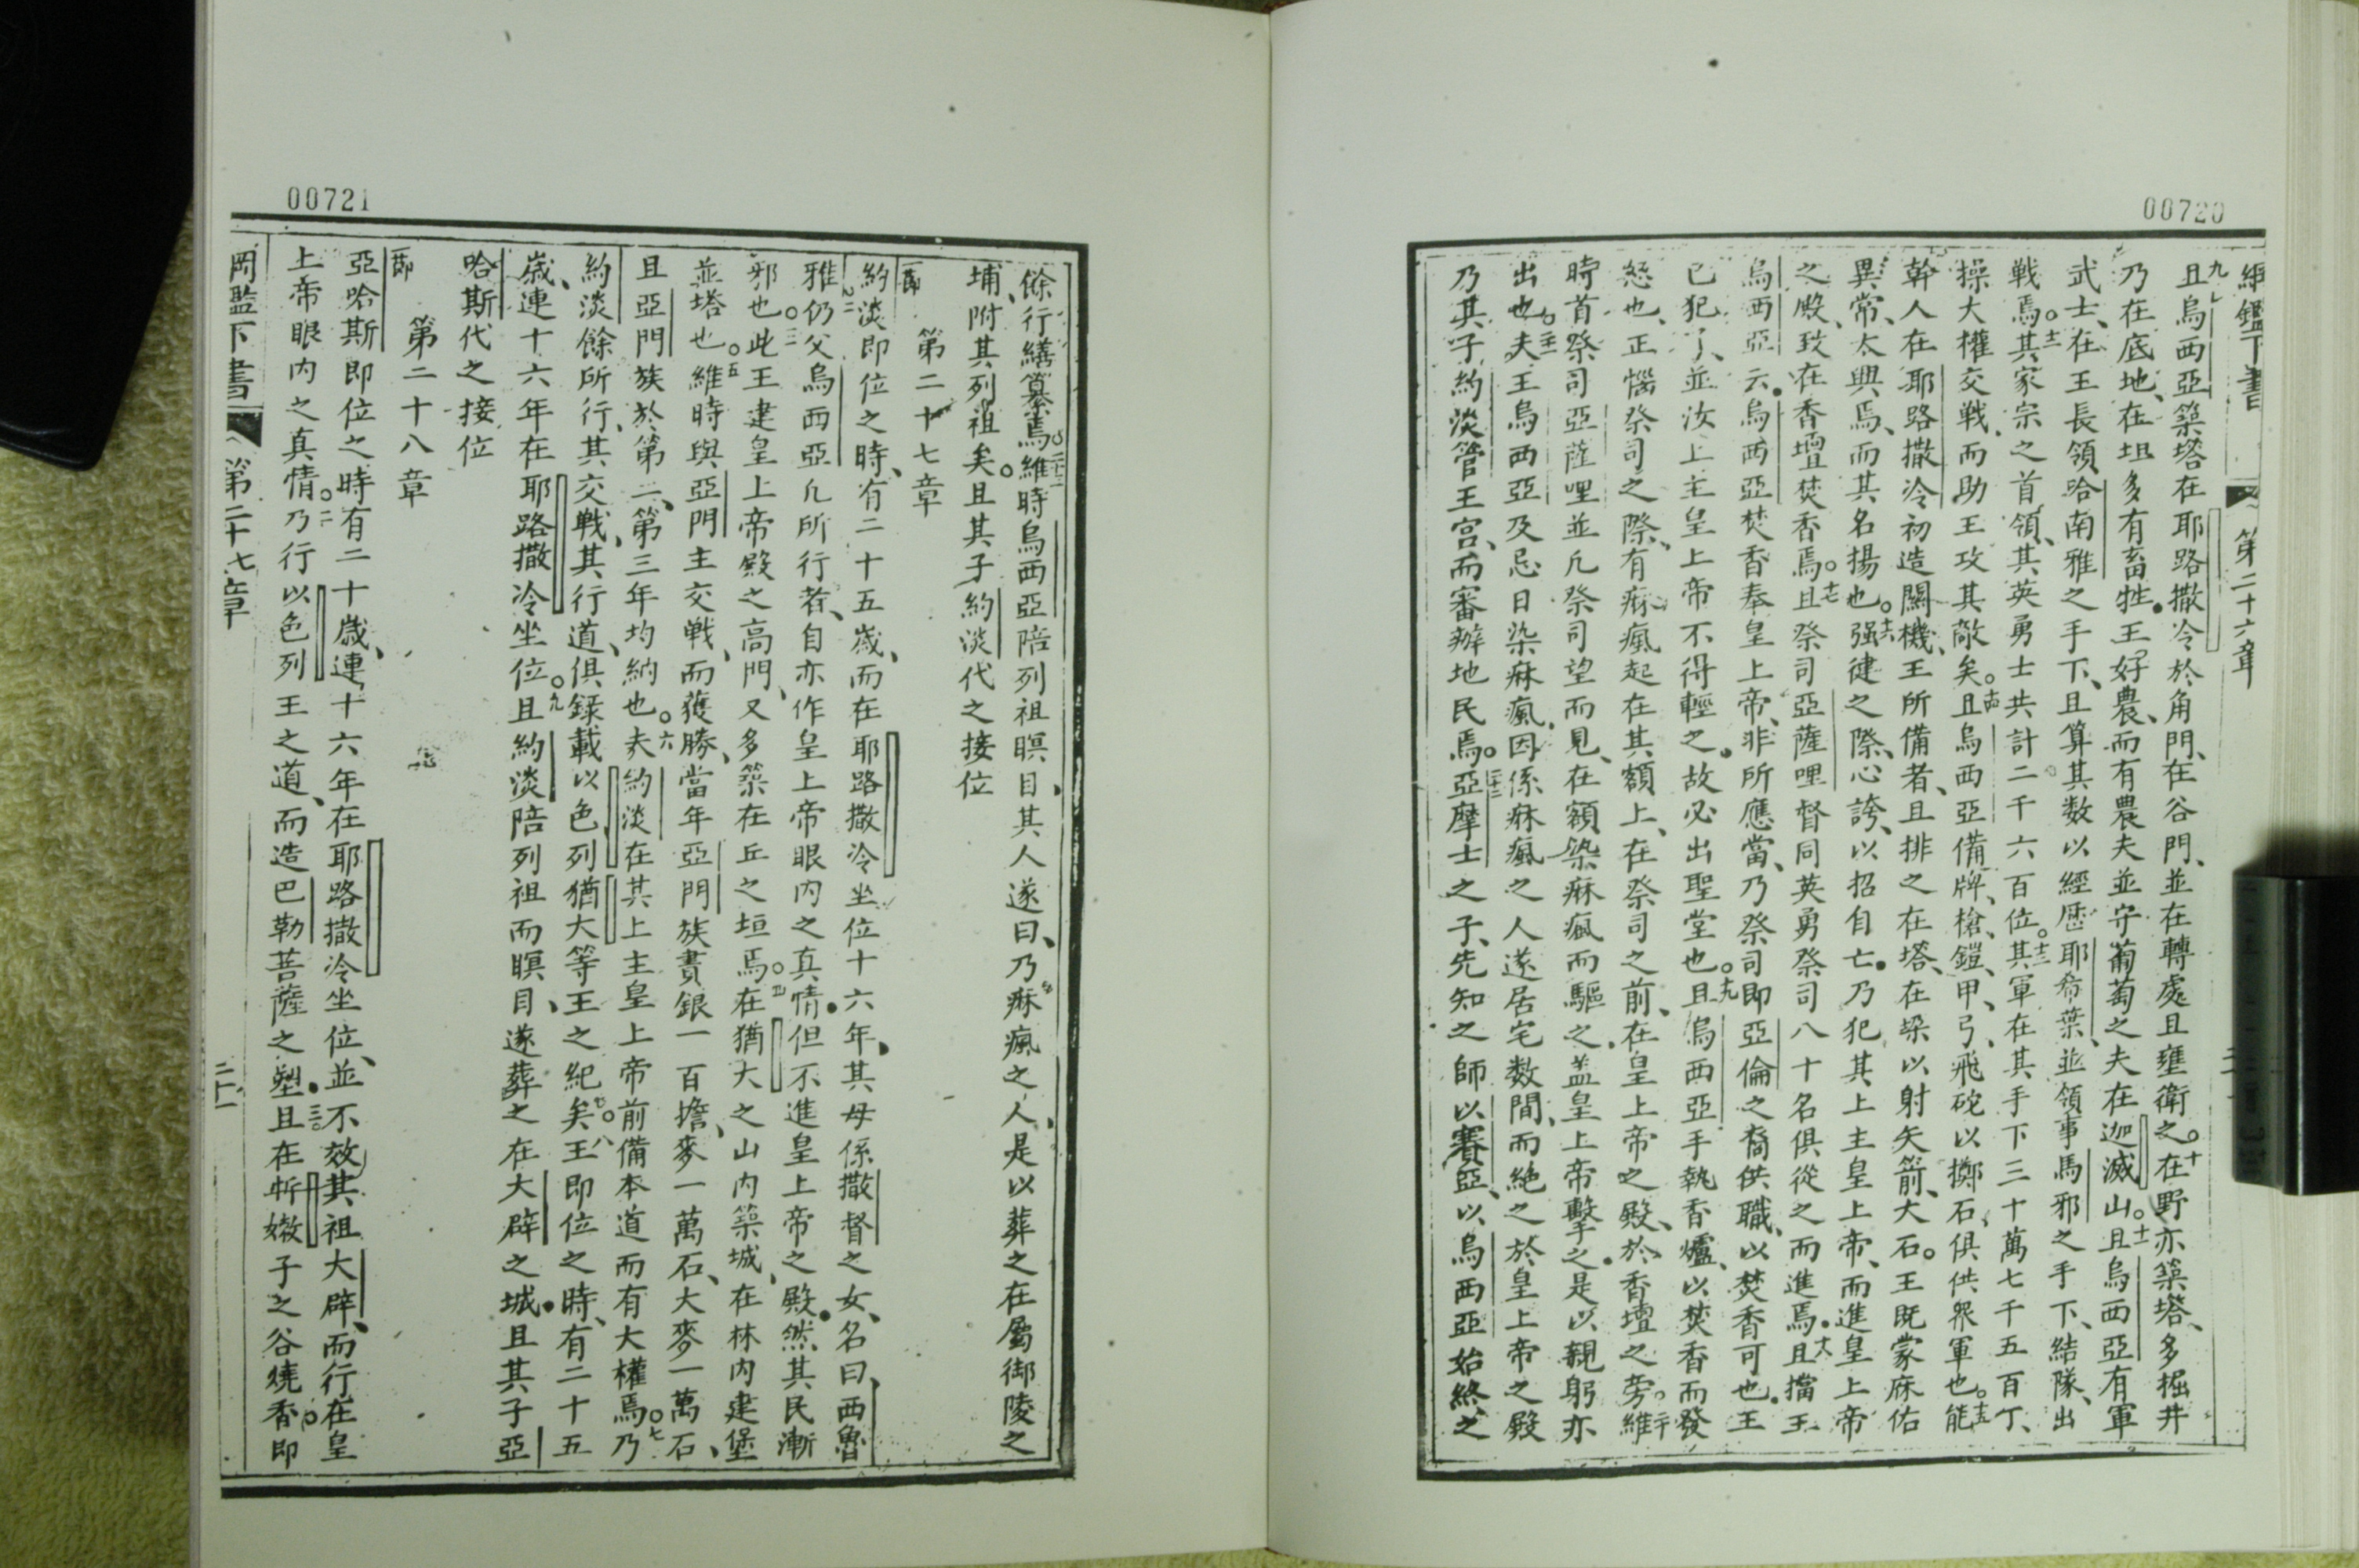 00720
綱鑑下書 第二十六章
九且烏西亞築塔在耶路撒冷於角門、在谷門、並在轉處且壅衛之。十在野亦築塔、多掘井
乃在底地、在坦多有畜牲王好農、而有農夫並守葡萄之夫在迦滅山。十一且烏西亞有軍
武士、在王長領哈南雅之手下、且算其数以經歷耶希葉、並領事馬邪之手下、結隊、出
戦焉。十二其家宗之首領、其英勇士共計二千六百位。十三其軍在其手下三十萬七千五百丁、
操大權交戦、而助王攻其敵矣。十四且烏西亞備牌、槍、鎧、甲、弓、飛砣以擲石、俱供衆軍也。十五能
幹人在耶路撒冷初造關機、王所備者、且排之在塔、在垛以射矢箭、大石。王既蒙庥佑
異常、太興焉、而其名揚也。十六强健之際、心誇、以招自亡。乃犯其上主皇上帝、而進皇上帝
之殿、致在香壇焚香焉。十七且祭司亞薩哩督同英勇祭司八十名俱從之而進焉。十八且擋王
烏西亞云。烏西亞焚香奉皇上帝、非所應當、乃祭司即亞倫之裔供職、以焚香可也。王
已犯了、並汝上主皇上帝不得輕之。故必出聖堂也。十九且烏西亞手執香爐、以焚香而發
怒也、正惱祭司之際、有痳瘋起在其額上、在祭司之前、在皇上帝之殿、於香壇之旁。二十維
時首祭司亞薩哩並凡祭司望而見、在額染痳瘋而驅之、盖皇上帝擊之。是以親躬亦
出也。二十一夫王烏西亞及忌日染痳瘋、因係痳瘋之人遂居宅数間、而絶之於皇上帝之殿
乃其子約淡管王宫、而審辦地民焉。二十二亞摩士之子、先知之師以賽亞、以烏西亞始終之
00721
餘行繕纂焉。二十三維時烏西亞陪列祖瞑目、其人遂曰、乃痳瘋之人、是以葬之在屬御陵之
埔、附其列祖矣。且其子約淡代之接位
第二十七章
一節約淡即位之時、有二十五歲、而在耶路撒冷坐位十六年、其母係撒督之女、名曰、西魯
雅。二仍父烏西亞凡所行者、自亦作皇上帝眼内之真情。但不進皇上帝之殿。然其民漸
邪也。三此王建皇上帝殿之高門、又多築在丘之垣焉。四在猶大之山内築城、在林内建堡
並塔也。五維時與亞門主交戦、而獲勝、當年亞門族賣銀一百擔、麥一萬石、大麥一萬石、
且亞門族於第二、第三年均納也。六夫約淡在其上主皇上帝前備本道而有大權焉。七乃
約淡餘所行、其交戦、其行道、俱録載以色列猶大等王之紀矣。八王即位之時、有二十五
歲、連十六年在耶路撒冷坐位。九且約淡陪列祖而瞑目、遂葬之在大辟之城。且其子亞
哈斯代之接位
第二十八章
一節亞哈斯即位之時有二十歲、連十六年在耶路撒冷坐位、並不效其祖大辟、而行在皇
上帝眼内之真情。二乃行以色列王之道、而造巴勒菩薩之塑。三且在忻嫩子之谷燒香。即
岡鑑下書 第二十七章 二十一